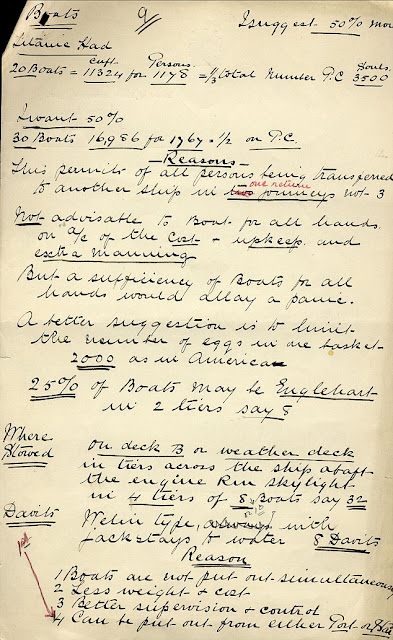 Boats 9/ I suggest 50% mor
Titanic Had
cuft Persons Souls
20 Boats = 11324 for 1178 = 1/3 total Number P.C 3500
I want 50%
30 Boats 16,986 for 1767 = 1/2 on P.C.
- Reasons -
This permits of all persons being transferred
one return
to another ship in two journeys not 3
Not advisable to Boat for all hands
on a/c of the Cost + upkeep and
extra manning
But a sufficiency of Boats for all
hands would allay a panic.
A better suggestion is to limit
the number of eggs in one basket-
2000 as in America
25% of Boats may be Englehart
in 2 tiers say 8
Where
Stowed
on deck B or weather deck
in tiers across the ship abaft
the engine Rm skylight
in 4 tiers of 8 Boats say 32
Davits Welin type with
Jackstays to water 8 Davits
Reason
1 Boats are not put out simultaneous
2 Less weight & cost
3 Better supervision & control
4 Can be put out from either Port or